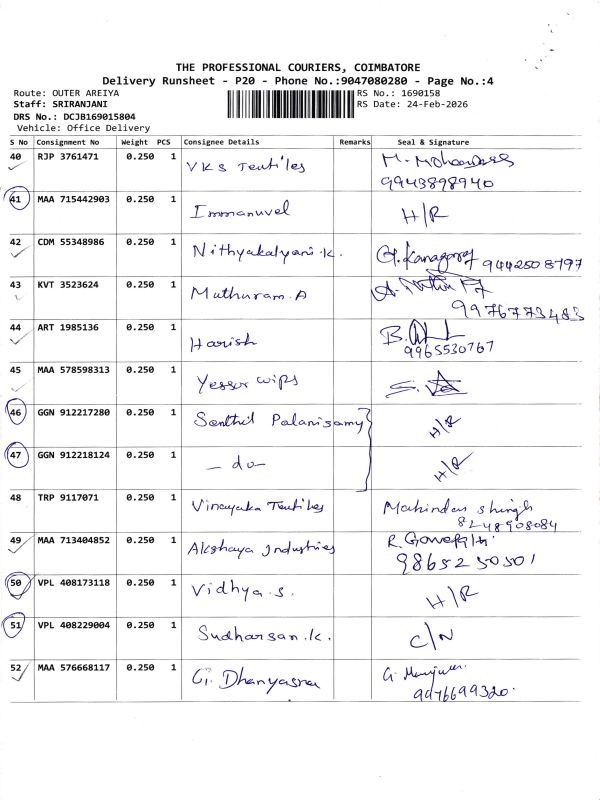 THE PROFESSIONAL COURIERS, COIMBATORE
Delivery Runsheet - P20 - Phone No.:9047080280 - Page No.:4
Route: OUTER AREIYA RS No.: 1690158
Staff: SRIRANJANI RS Date: 24-Feb-2026
DRS No.: DCJB169015804
Vehicle: Office Delivery
S No Consignment No Weight PCS Consignee Details Remarks Seal & Signature
40 RJP 3761471 0.250 1 VKS Textiles
9943898940
41 MAA 715442903 0.250 1 Immanuvel H/R
42 CDM 55348986 0.250 1 Nithyakalyani.K. 9442508797
43 KVT 3523624 0.250 1 Muthuram.A
9976773483
44 ART 1985136 0.250 1 Harish
9965530767
45 MAA 578598313 0.250 1
46 GGN 912217280 0.250 1 Senthil Palanisamy H/R
47 GGN 912218124 0.250 1 - do - H/R
48 TRP 9117071 0.250 1 Vinayaka Textiles
8248908084
49 MAA 713404852 0.250 1 Akshaya Industries
9865250501
50 VPL 408173118 0.250 1 Vidhya.S. H/R
51 VPL 408229004 0.250 1 Sudharsan.K. C/N
52 MAA 576668117 0.250 1 G. 
9976699320.